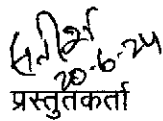 20-6-24
प्रस्तुतकर्ता